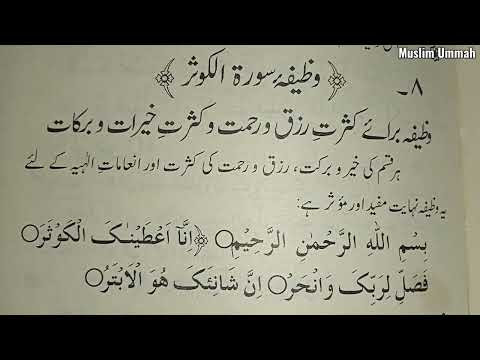 Muslim Ummah
۸۔ ﴿ وظیفۂ سورۃ الکوثر ﴾
وظیفہ برائے کثرتِ رزق و رحمت و کثرتِ خیرات و برکات
ہر قسم کی خیر و برکت، رزق و رحمت کی کثرت اور انعاماتِ الٰہیہ کے لئے
یہ وظیفہ نہایت مفید اور مؤثر ہے:
بِسْمِ اللهِ الرَّحْمٰنِ الرَّحِيْمِ○ ﴿اِنَّآ اَعْطَيْنٰكَ الْكَوْثَرَ○
فَصَلِّ لِرَبِّكَ وَانْحَرْ○ اِنَّ شَانِئَكَ هُوَ الْاَبْتَرُ○